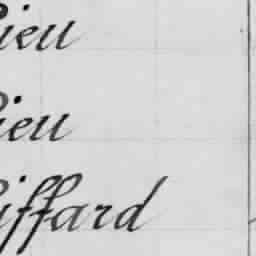 ieu
ieu
iffard